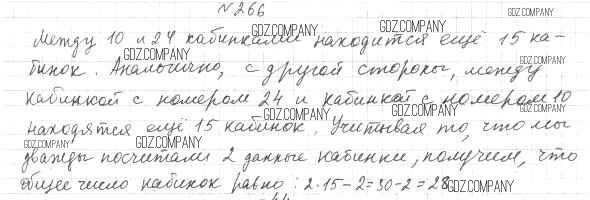 №266
Между 10 и 24 кабинками находится ещё 15 ка-
бинок. Аналогично, с другой стороны, между
кабинкой с номером 24 и кабинкой с номером 10
находятся ещё 15 кабинок. Учитывая то, что мы
дважды посчитали 2 данные кабинки, получим, что
общее число кабинок равно: 2·15-2=30-2=28
GDZ.COMPANY
GDZ.COMPANY
GDZ.COMPANY
GDZ.COMPANY
GDZ.COMPANY
GDZ.COMPANY
GDZ.COMPANY
GDZ.COMPANY
GDZ.COMPANY
GDZ.COMPANY
GDZ.COMPANY
GDZ.COMPANY